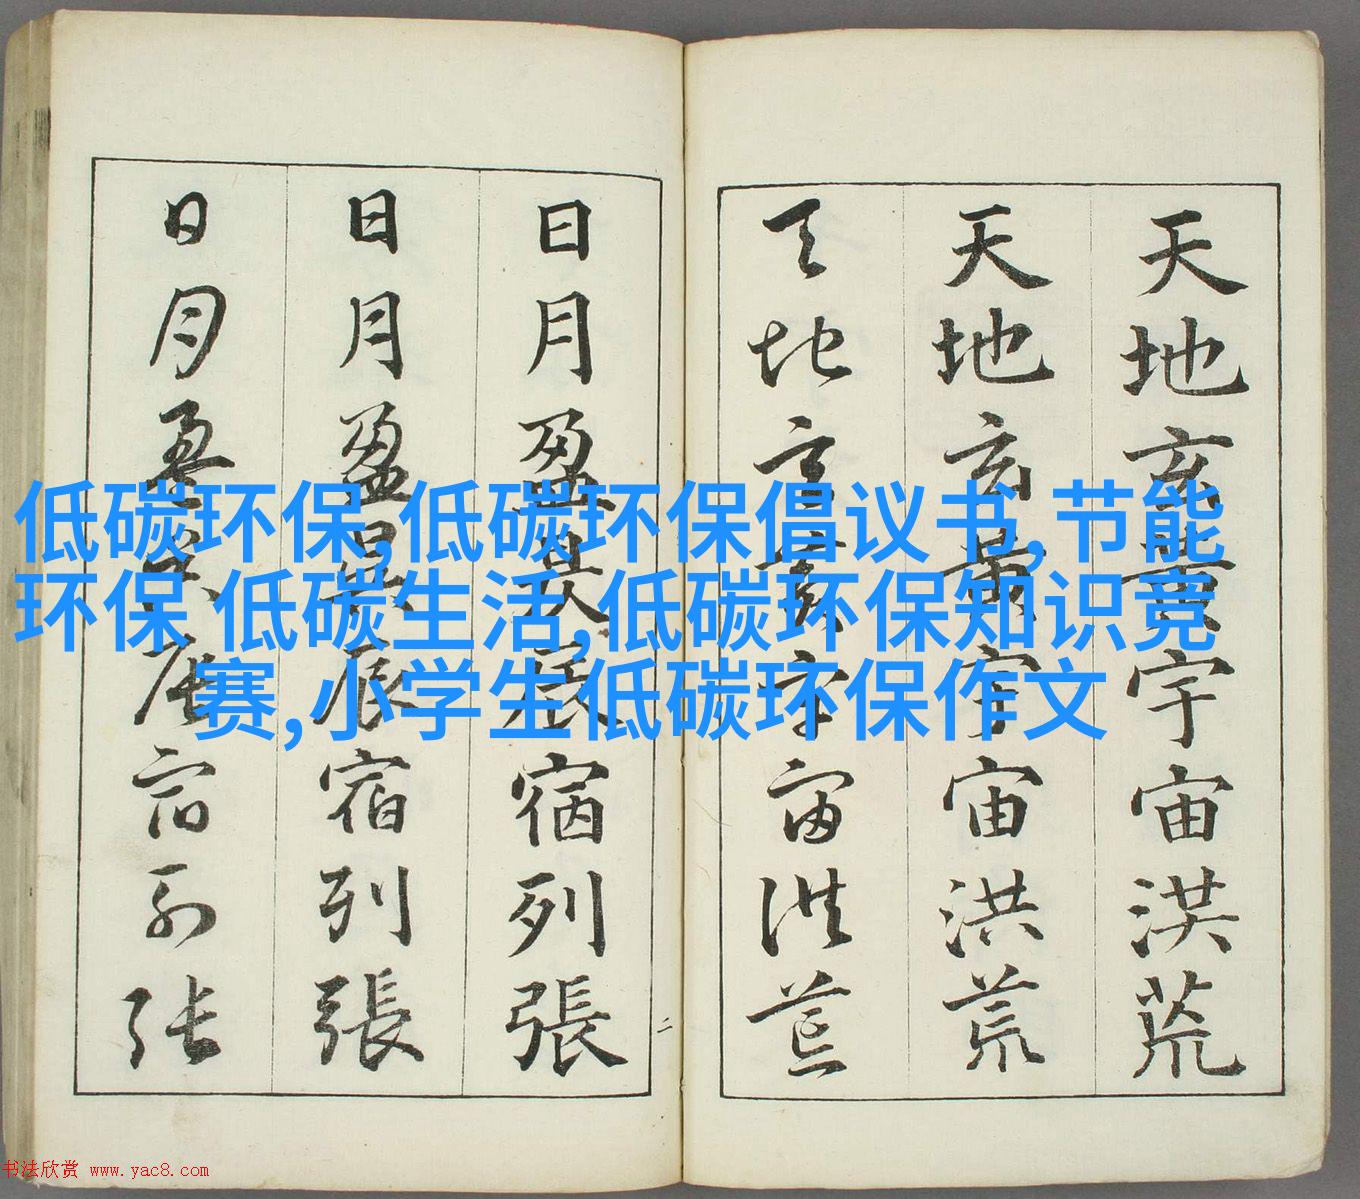 天地玄黄宇宙洪荒
天地玄黄宇宙洪荒
天地玄黄宇宙洪荒
日月盈昃辰宿列張
日月盈昃辰宿列張
日月盈昃辰宿列张
二
低碳环保,低碳环保倡议书,节能
环保 低碳生活,低碳环保知识竞
赛,小学生低碳环保作文
书法欣赏 www.yac8.com